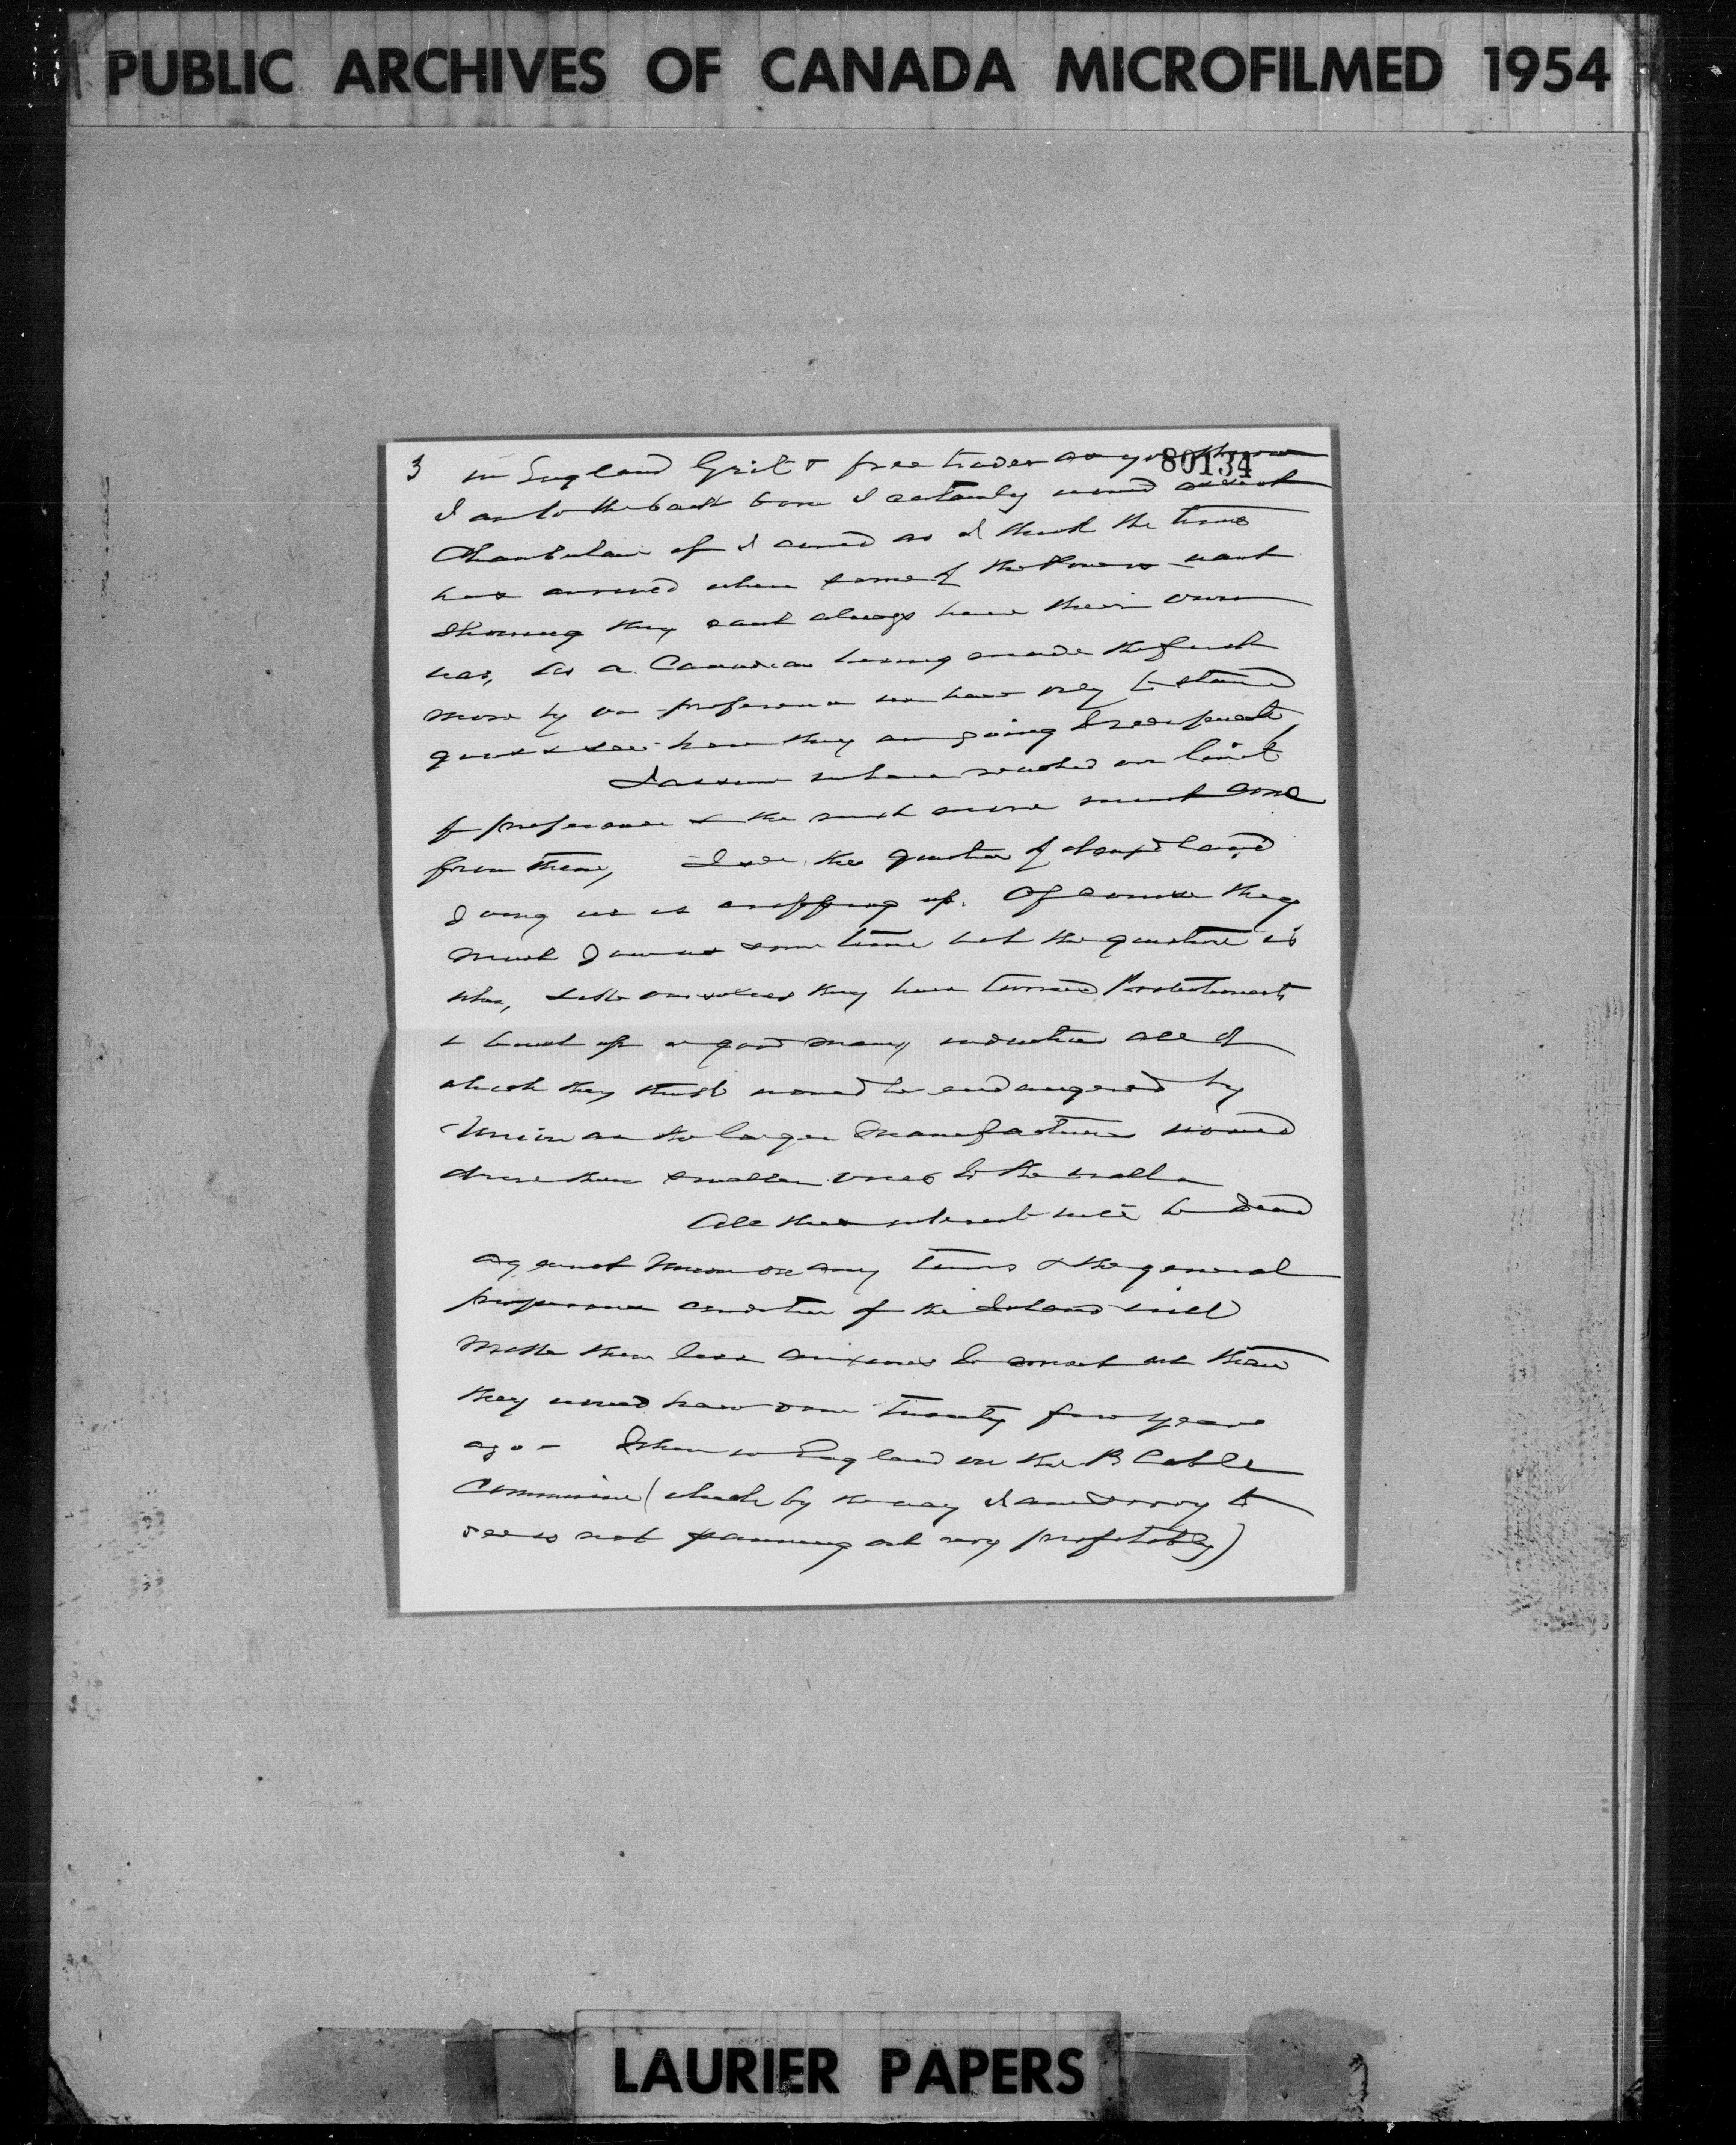 PUBLIC ARCHIVES OF CANADA MICROFILMED 1954
80134
3 in England Grit & free trader as you know
I am to the back bone I certainly would assist
Chamberlain if I could as I think the time
has arrived when some of the Powers want
showing they cant always have their own
way, As a Canadian having made the first
move by our preference we have only to stand
quiet & see how they are going to reciprocate,
I assume we have reached our limit
of preference & the next move must come
from them, I see the question of Newfoundland
joining us is cropping up. Of course they
must join us some time but the question is
when, like ourselves they have turned Protectionists
& built up a good many industries all of
which they think would be endangered by
Union as the larger manufactures would
drive these smaller ones to the wall
All these interests will be dead
against Union on any terms & the general
prosperous condition of the Island will
make them less anxious to come in than
they would have done twenty four years
ago - When in England on the P Cable
Commission (which by the way I am sorry to
see is not panning out very profitably)
LAURIER PAPERS